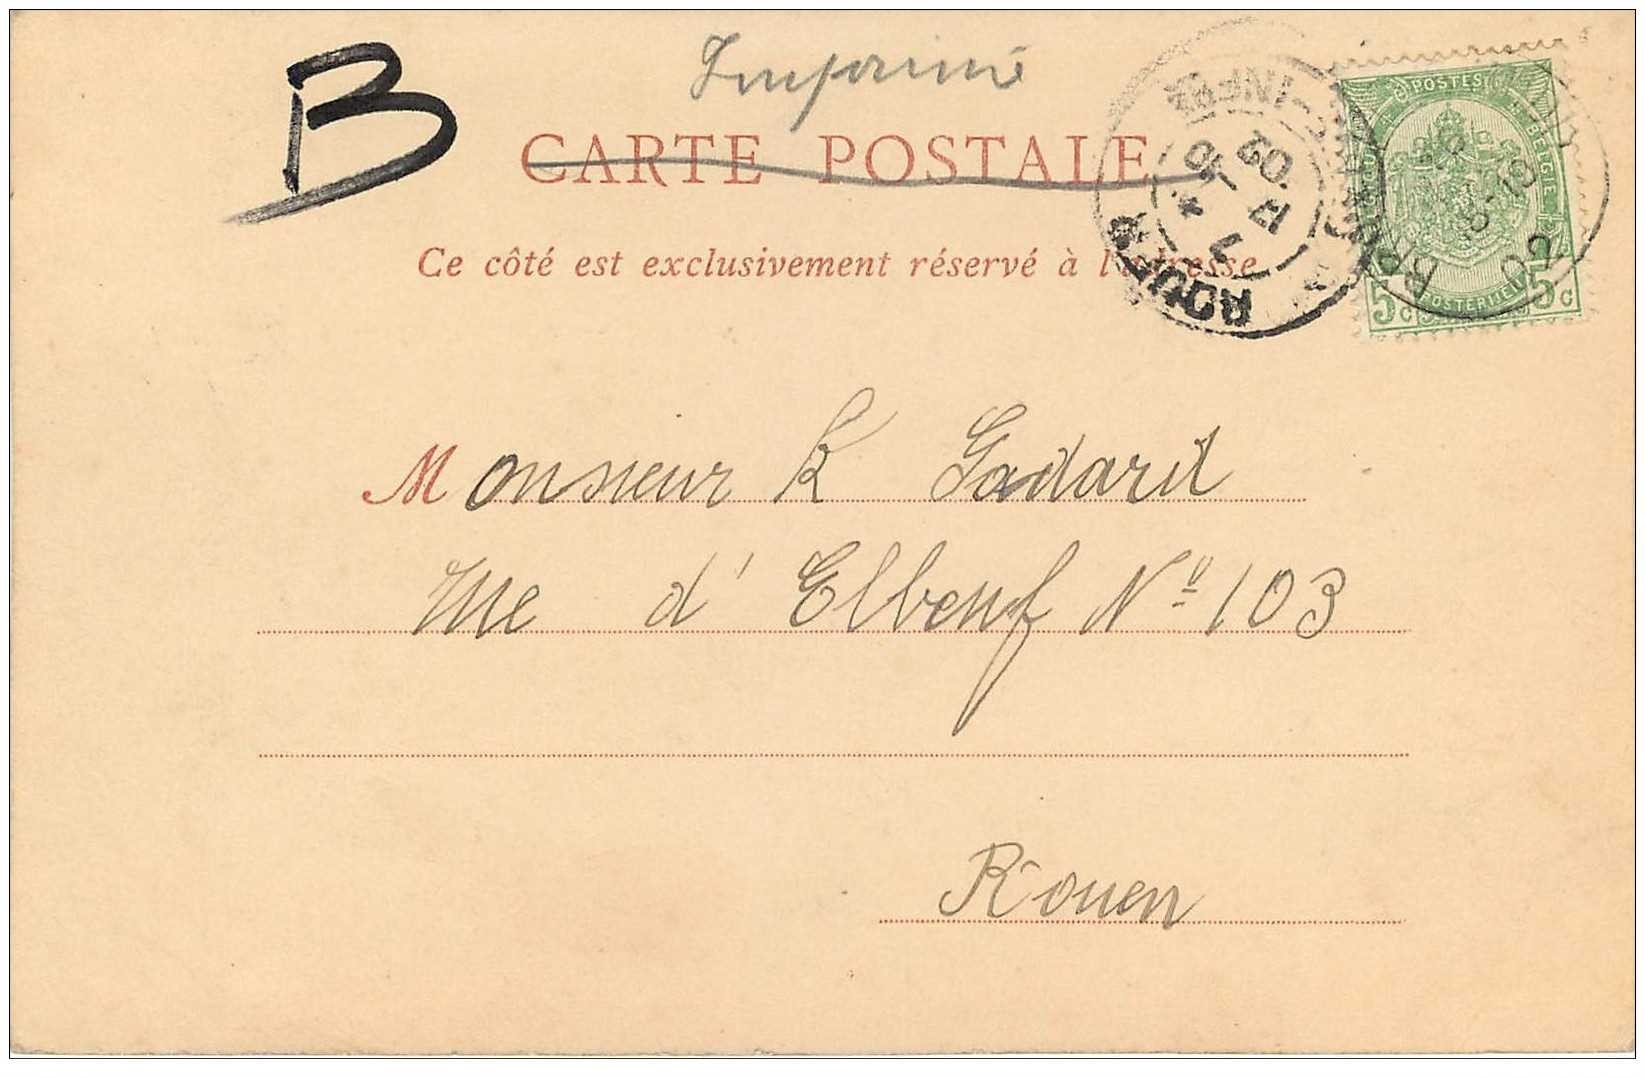 B
Imprimé
CARTE POSTALE
Ce côté est exclusivement réservé à l'adresse
POSTES
BELGIE
5c 5c
ROUEN
INFRE
02
Monsieur K Gadard
Rue d'Elbeuf Nº 103
Rouen